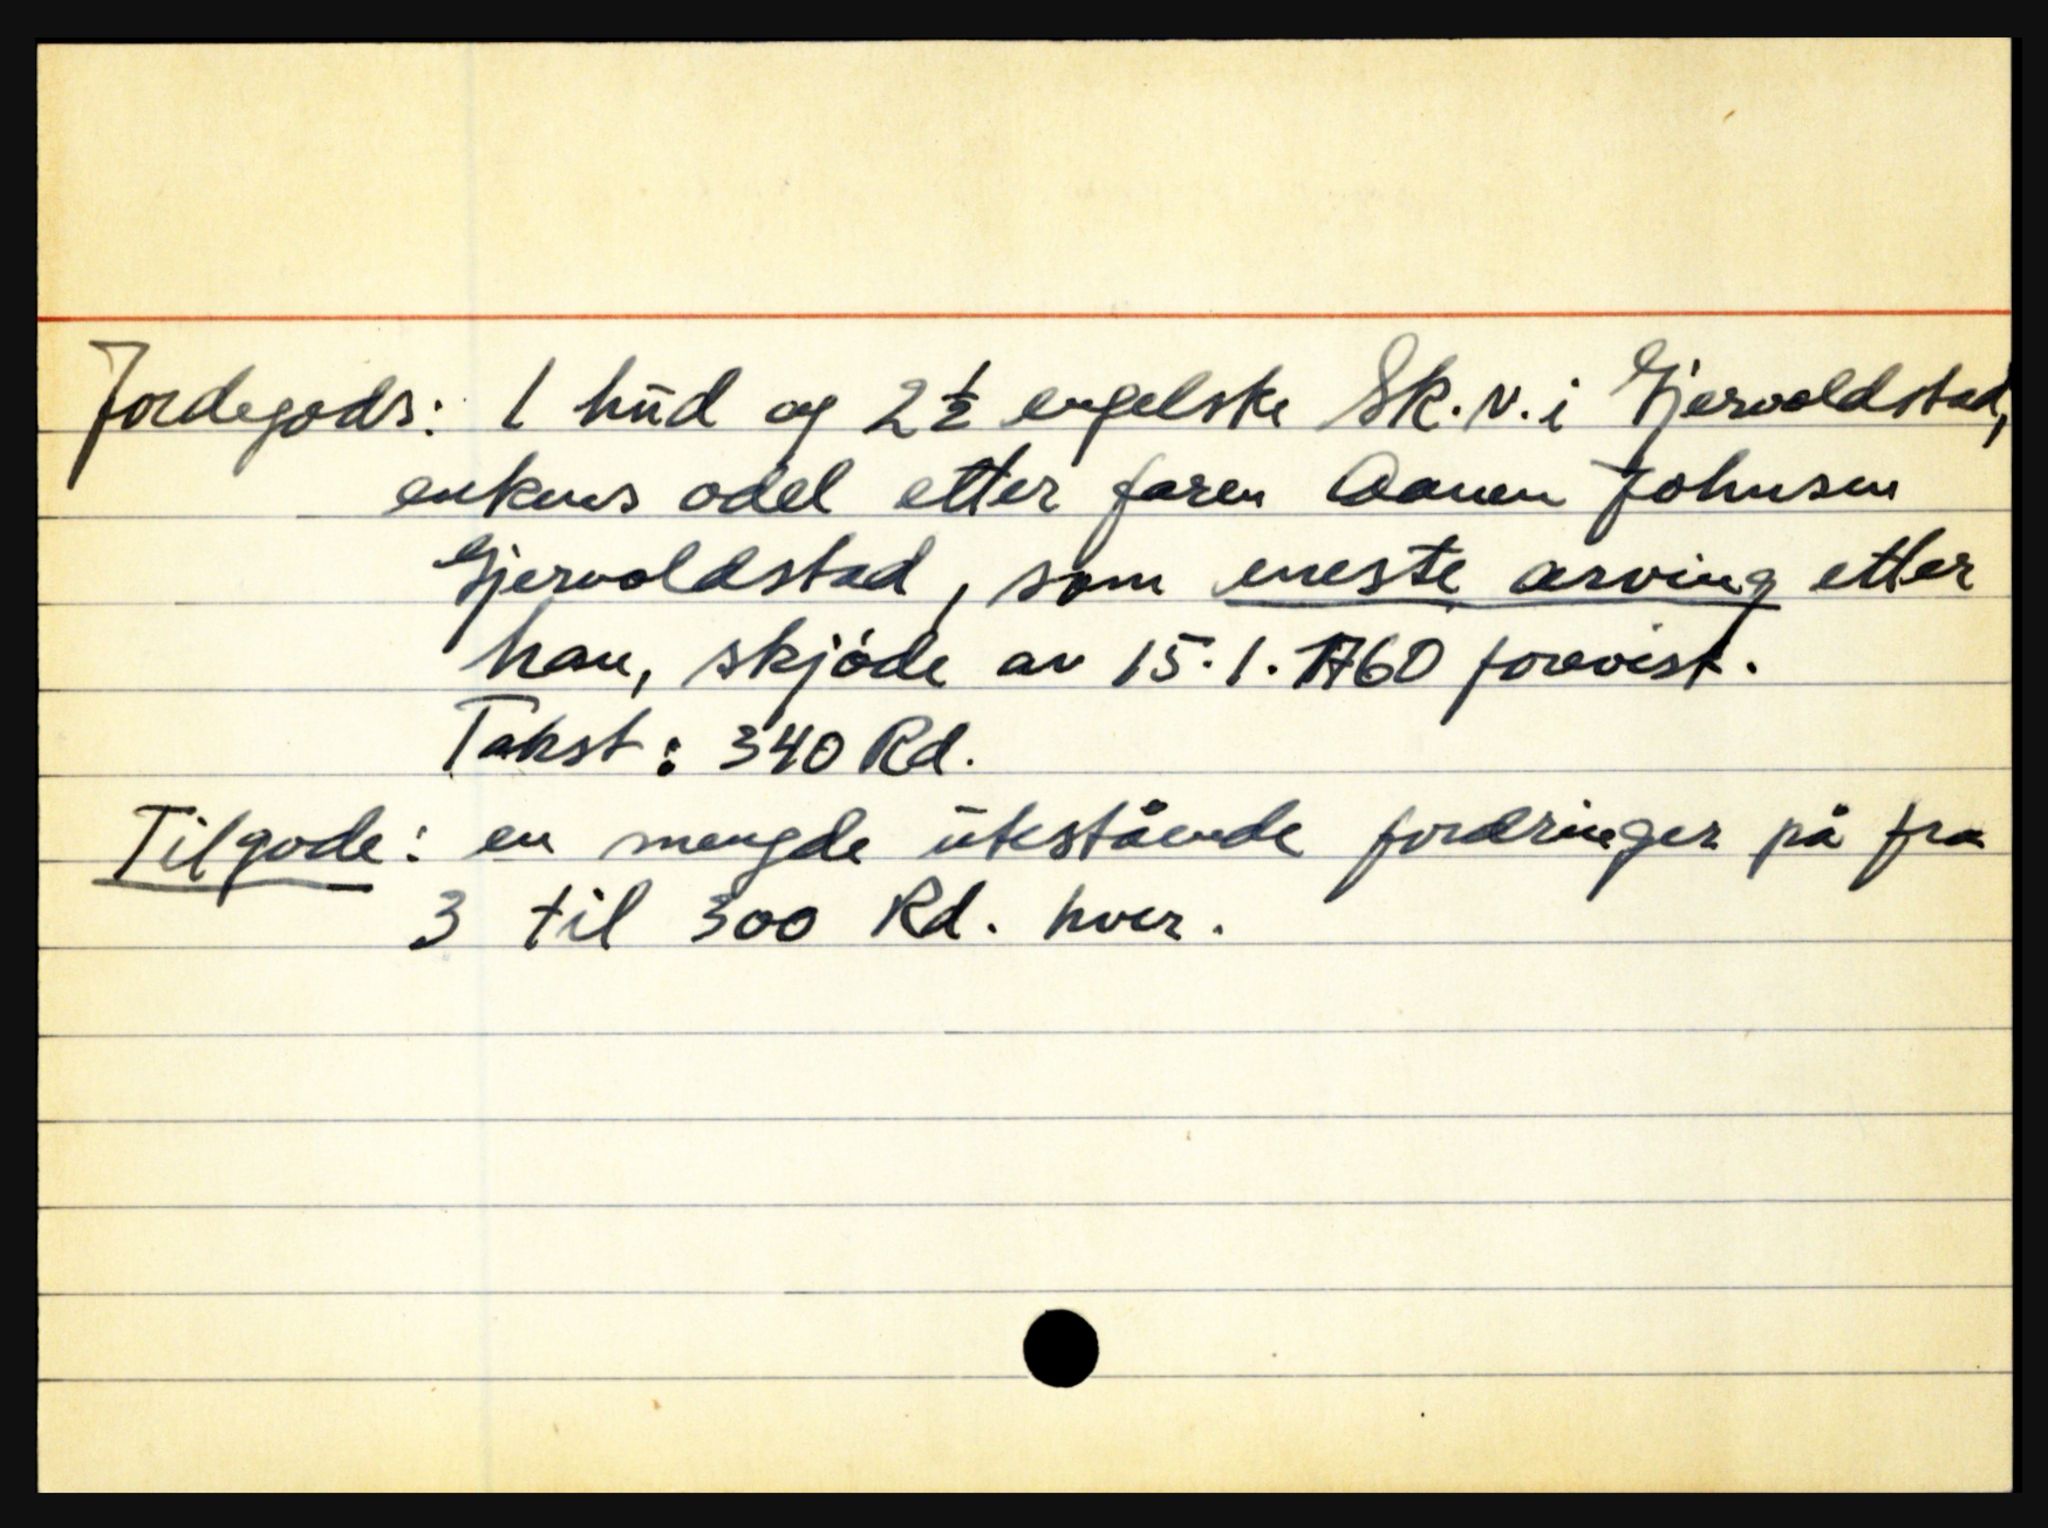 Jordegods: 1 hud og 2½ engelske Sk. N. i Gjervoldstad,
enkens odel etter faren Aanen Johnsen
Gjervoldstad, som eneste arving etter
han, skjöde av 15.1.1760 forevist.
Takst: 340 Rd.
Tilgode: en mengde utestående fordringer på fra
3 til 300 Rd. hver.